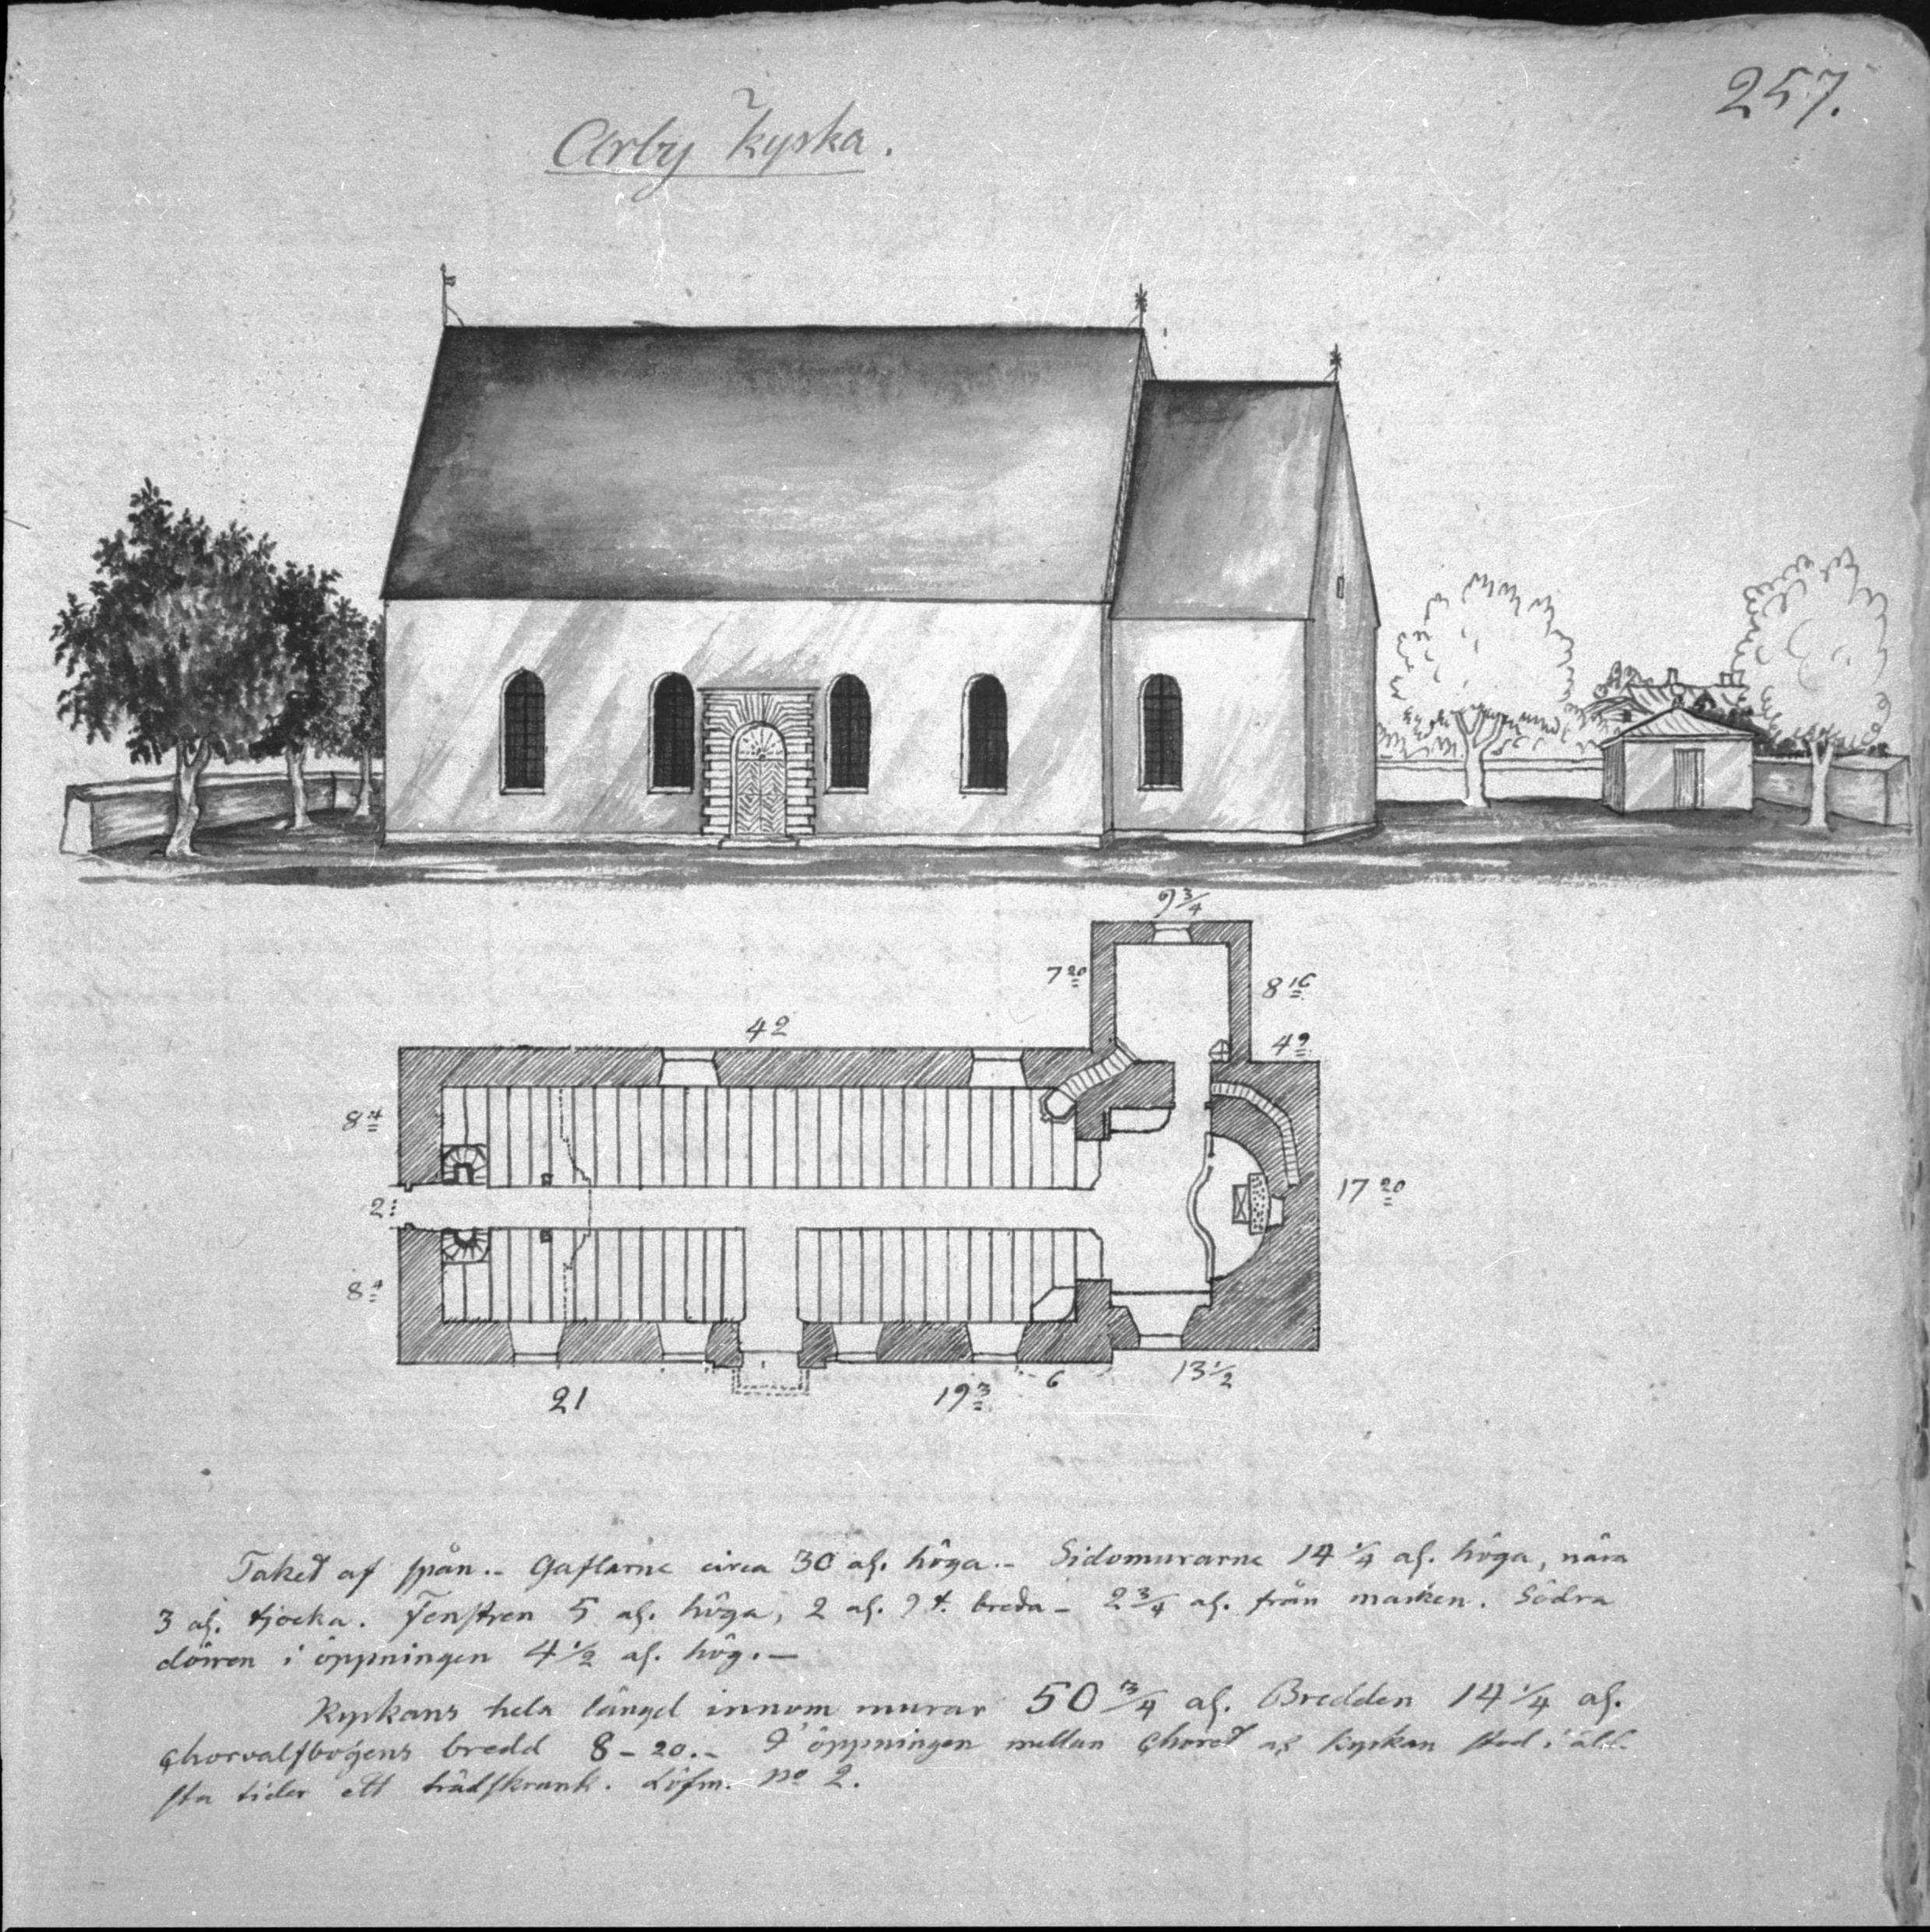 257.
Arby kyrka.
9 3/4
7 20
8 16
42
4 9
8 4
2:
17 20
8 4
21
19 3
6
13 1/2
Taket af spån.- Gaflarne circa 30 al. höga.- Sidomurarne 14 1/4 al. höga, nära
3 al. tjocka. Fenstren 5 al. höga, 2 al. 9 t. breda - 2 3/4 al. från marken. Södra
dörren i öppningen 4 1/2 al. hög.-
Kyrkans hela längd innom murar 50 3/4 al. Bredden 14 1/4 al.
Chorvalfbogens bredd 8-20.- I öppningen mellan Choret af kyrkan stod i äld-
sta tider ett trädskrank. Löfm. No 2.